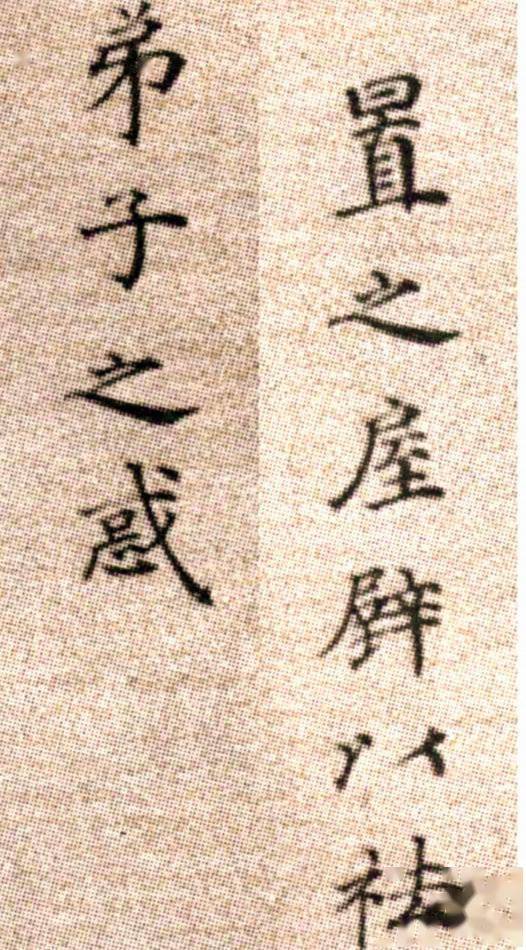 置之屋辟以祛
弟子之惑